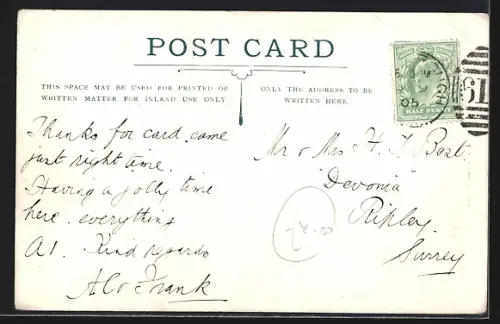 POST CARD
THIS SPACE MAY BE USED FOR PRINTED OR
WRITTEN MATTER FOR INLAND USE ONLY
ONLY THE ADDRESS TO BE
WRITTEN HERE.
Thanks for card came
just right time.
Having a jolly time
here. everything
A1. Kind regards
Frank
Mr & Mrs H. J. Best.
"Devonia"
Ripley.
Surrey
HALF PENNY
05